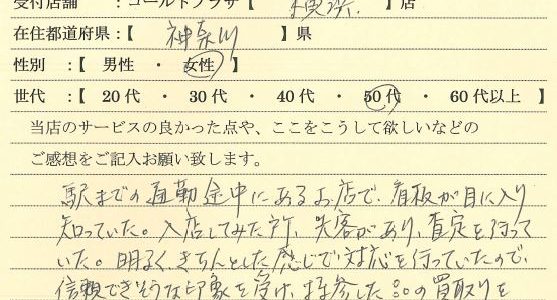 受付店舗　：ゴールドプラザ【 横浜 】店
在住都道府県：【 神奈川 】県
性別　：【 男性 ・ 女性 】
世代　：【 20代 ・ 30代 ・ 40代 ・ 50代 ・ 60代以上 】
当店のサービスの良かった点や、ここをこうして欲しいなどの
ご感想をご記入お願い致します。
駅までの通勤途中にあるお店で、看板が目に入り
知っていた。入店してみた所、先客があり、査定を行って
いた。明るく、きちんとした感じで対応を行っていたので、
信頼できそうな印象を受け、持参した品の買取りを